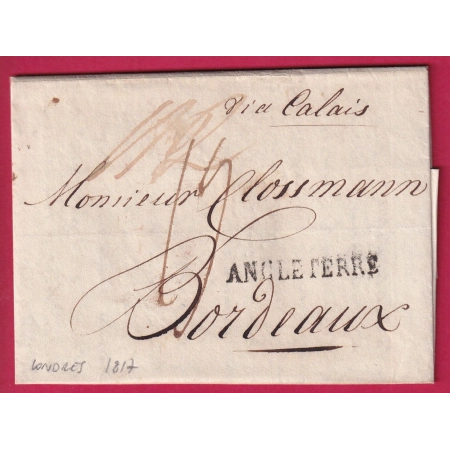 via Calais
Monsieur Clossmann
ANGLETERRE
Bordeaux
LONDRES 1817